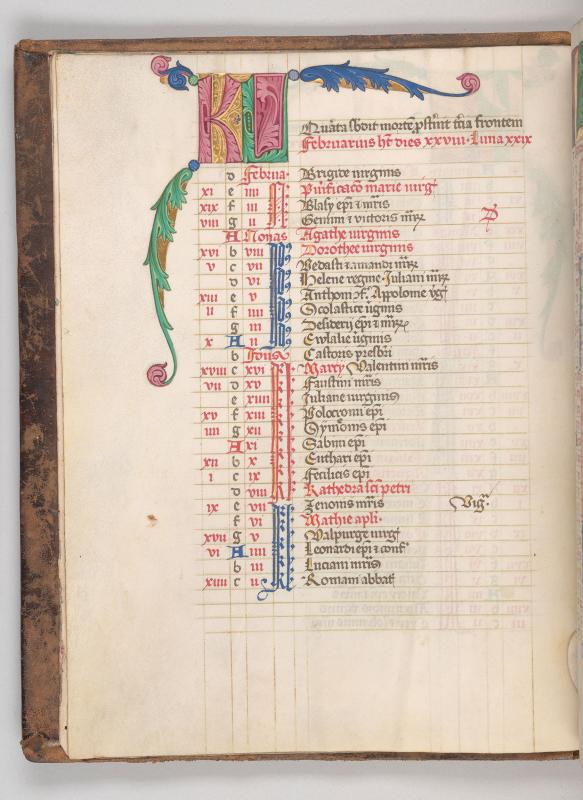 KL Quarta subdit mortem prosternit tercia frontem
Februarius ht dies xxviii. Luna xxix
d Februa. Brigide virginis
xi e iiii Purificaco marie virg
xix f iii Blasy epi et mris
viii g ii Gemini et victoris
A Nonas Agathe virginis
xvi b viii Dorothee virginis
v c vii Vedasti et amandi
d vi Helene regine. Juliani
xiii e v Anthom Appolonie vg
ii f iiii Scolastice vginis
g iii Desiderij epi et
x A ii Eulalie vginis
b Idus Castoris presbri
xviii c xvi Marcy Valentini mris
vii d xv Faustini mris
e xiiii Juliane virginis
xv f xiii Polocronii epi
iiii g xii Symonis epi
A xi Sabini epi
xii b x Eucharii epi
i c ix Felicis epi
d viii Kathedra sci petri
ix e vii Zenonis mris Vig
f vi Mathie apli.
xvii g v Valpurge virg
vi A iiii Leonardi epi et conf
b iii Luciani mris
xiiii c ii Romani abbat